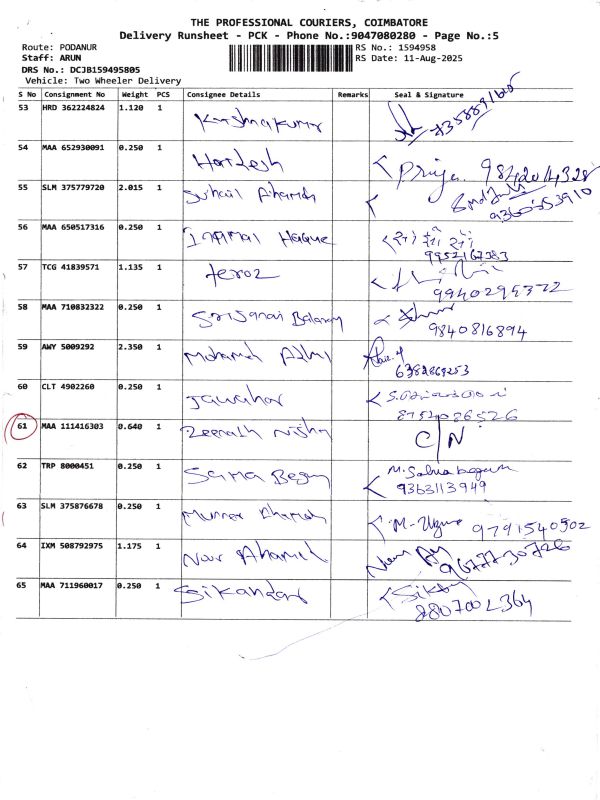 THE PROFESSIONAL COURIERS, COIMBATORE
Delivery Runsheet - PCK - Phone No.:9047080280 - Page No.:5
Route: PODANUR RS No.: 1594958
Staff: ARUN RS Date: 11-Aug-2025
DRS No.: DCJB159495805
Vehicle: Two Wheeler Delivery
S No Consignment No Weight PCS Consignee Details Remarks Seal & Signature
53 HRD 362224824 1.120 1 Krishnakumar
54 MAA 652930091 0.250 1 Haridesh Priya 9842014328
55 SLM 375779720 2.015 1 Suhail Ahamed 9360553910
56 MAA 650517316 0.250 1 Inamal Haque 9952167383
57 TCG 41839571 1.135 1 feroz 9940294372
58 MAA 710832322 0.250 1 9840816894
59 AWY 5009292 2.350 1 Mohamed 6382869253
60 CLT 4902260 0.250 1 Jawahar 8754086526
61 MAA 111416303 0.640 1 Zeenath nisha C/N
62 TRP 8000451 0.250 1 Saima Begum M. Salma begum 9363113949
63 SLM 375876678 0.250 1 Munner Ahamed M- 9791540502
64 IXM 508792975 1.175 1 Noor Ahamed 9677730726
65 MAA 711960017 0.250 1 Sikandar 2807002364